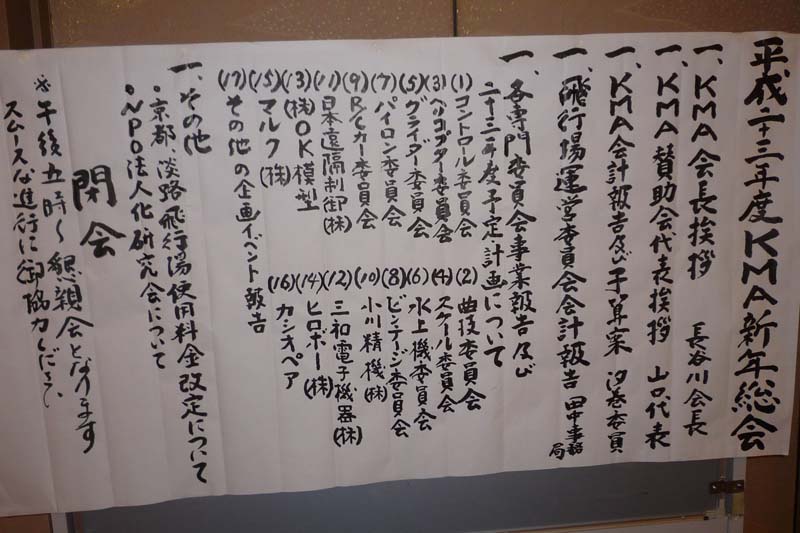 平成二十三年度KMA新年総会
一、KMA会長挨拶 長谷川会長
一、KMA賛助会代表挨拶 山口代表
一、KMA会計報告及び予算案 汐巻委員
一、飛行場運営委員会会計報告 田中事務局
一、各専門委員会事業報告及び
二十三年度予定計画について
(1)コントロール委員会 (2)曲技委員会
(3)ヘリコプター委員会 (4)スケール委員会
(5)グライダー委員会 (6)水上機委員会
(7)パイロン委員会 (8)ビンテージ委員会
(9)R/Cカー委員会 (10)小川精機(株)
(11)日本遠隔制御(株) (12)三和電子機器(株)
(13)(株)OK模型 (14)ヒロボー(株)
(15)マルク(株) (16)カシオペア
(17)その他の企画イベント報告
一、その他
・京都、淡路飛行場使用料金改定について
・NPO法人化研究会について
閉会
※午後五時〜懇親会となります
スムースな進行に御協力ください